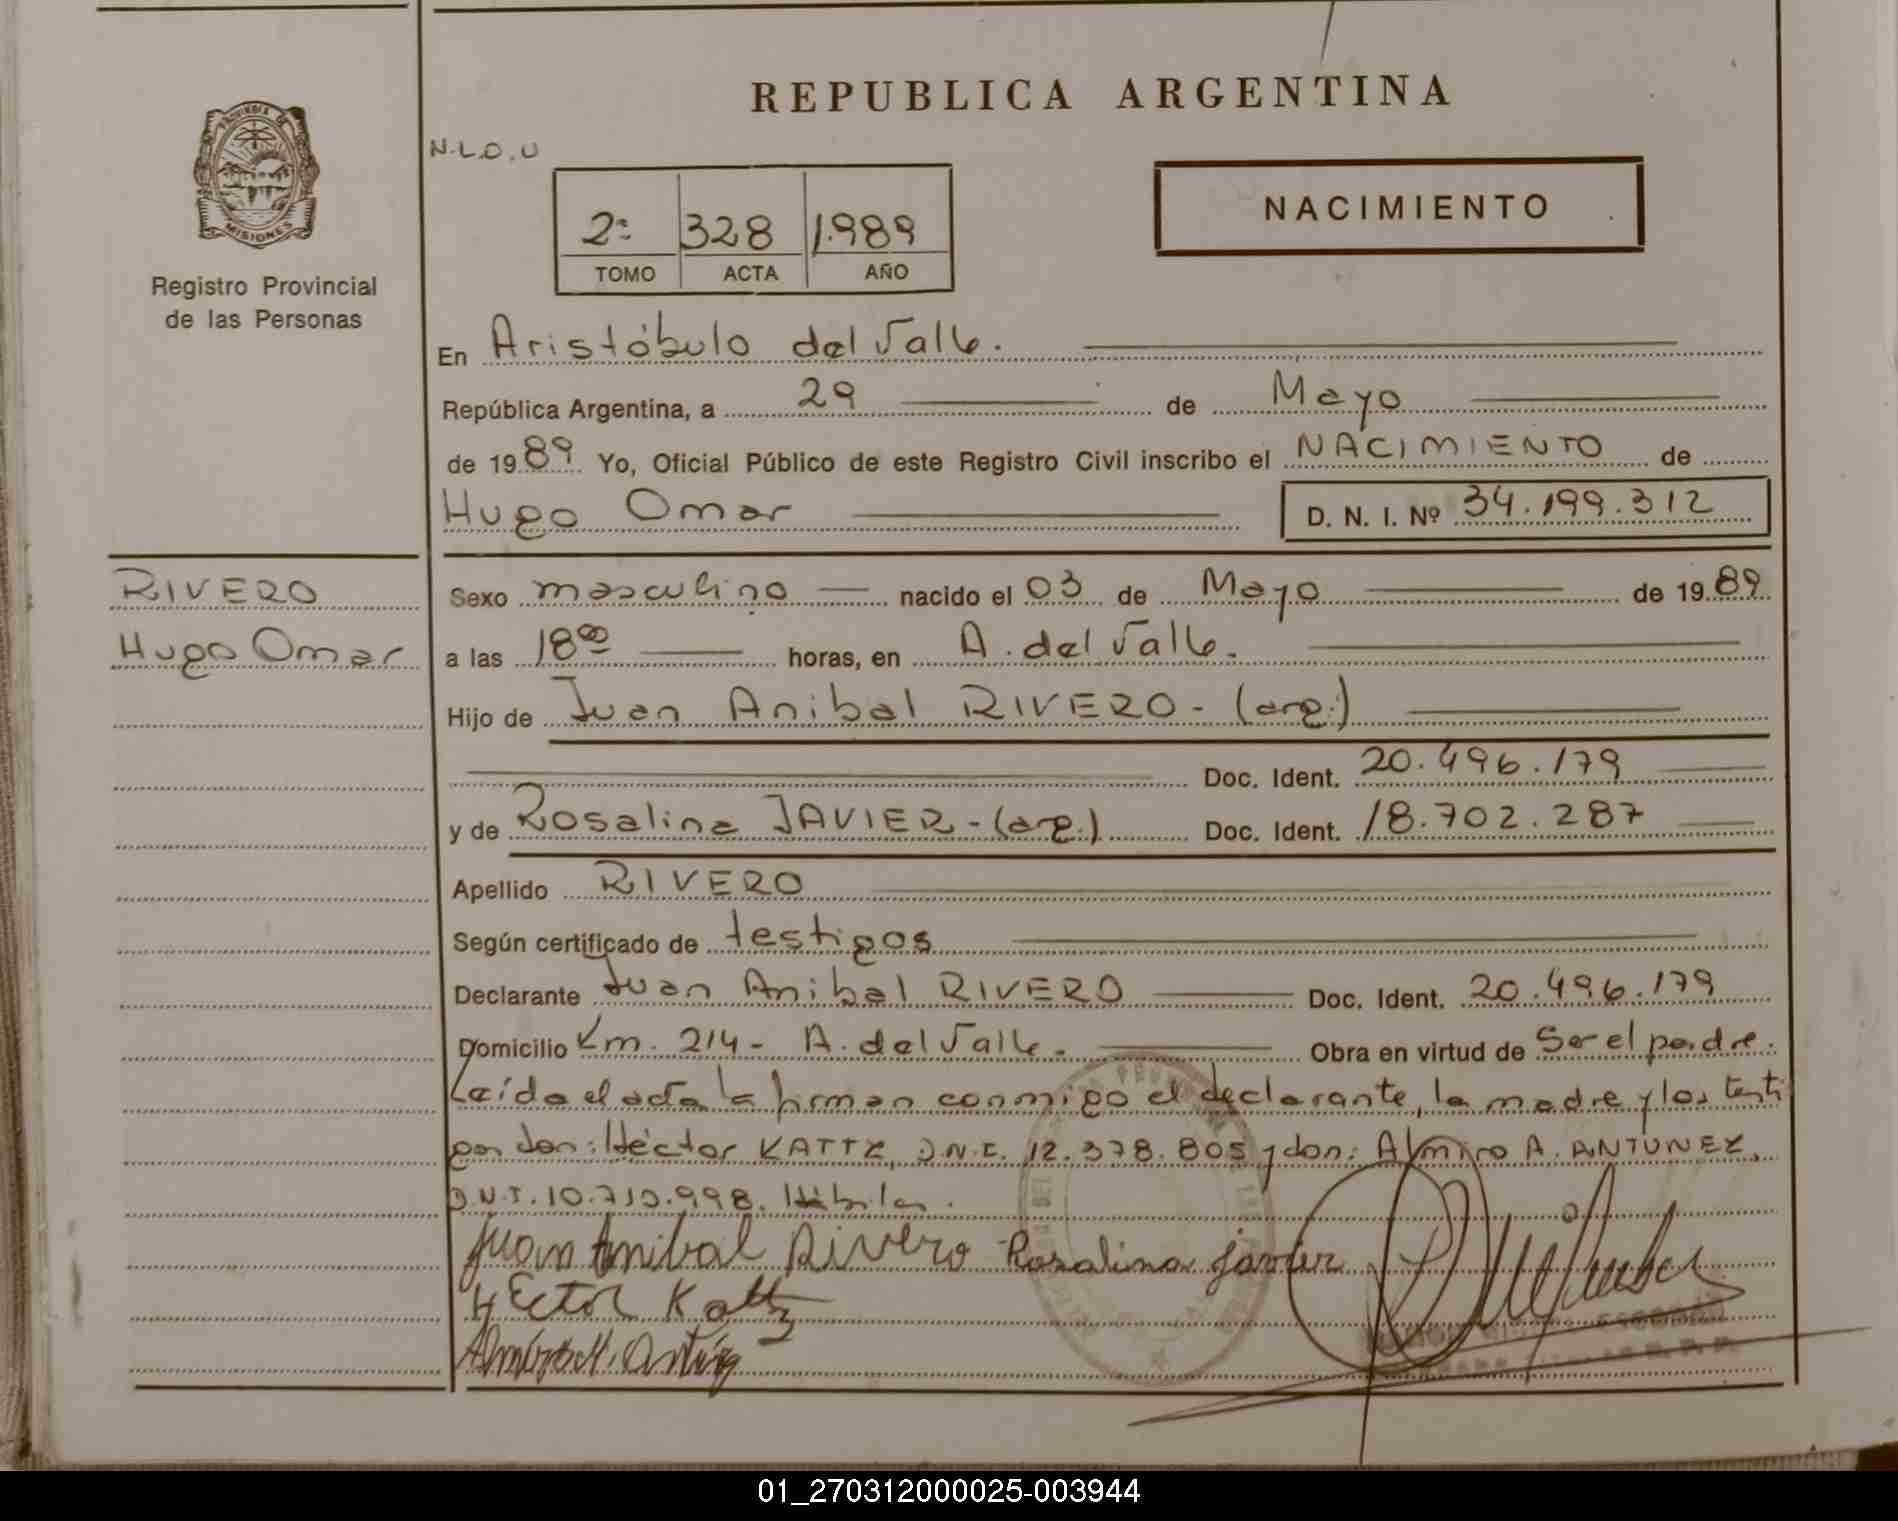 REPUBLICA ARGENTINA
PROVINCIA DE MISIONES
Registro Provincial
de las Personas
N.L.O.U
2º 328 1.989
TOMO ACTA AÑO
NACIMIENTO
En Aristóbulo del Valle.
República Argentina, a 29 de Mayo
de 1989 Yo, Oficial Público de este Registro Civil inscribo el NACIMIENTO de
Hugo Omar D. N. I. Nº 34.199.312
RIVERO
Hugo Omar
Sexo masculino nacido el 03 de Mayo de 1989
a las 18⁰⁰ horas, en A. del Valle.
Hijo de Juan Anibal RIVERO - (arg.)
Doc. Ident. 20.496.179
y de Rosalina JAVIER - (arg.) Doc. Ident. 18.702.287
Apellido RIVERO
Según certificado de testigos
Declarante Juan Anibal RIVERO Doc. Ident. 20.496.179
Domicilio Km. 214 - A. del Valle. Obra en virtud de Ser el padre.
Leída el acta la firman conmigo el declarante, la madre y los testi
gos don: Héctor KATTZ, D.N.I. 12.378.805 y don: Almiro A. ANTUNEZ,
D.N.I. 10.710.998. Hábiles.
Juan Anibal Rivero Rosalina javier
HEctor Kattz
01_270312000025-003944